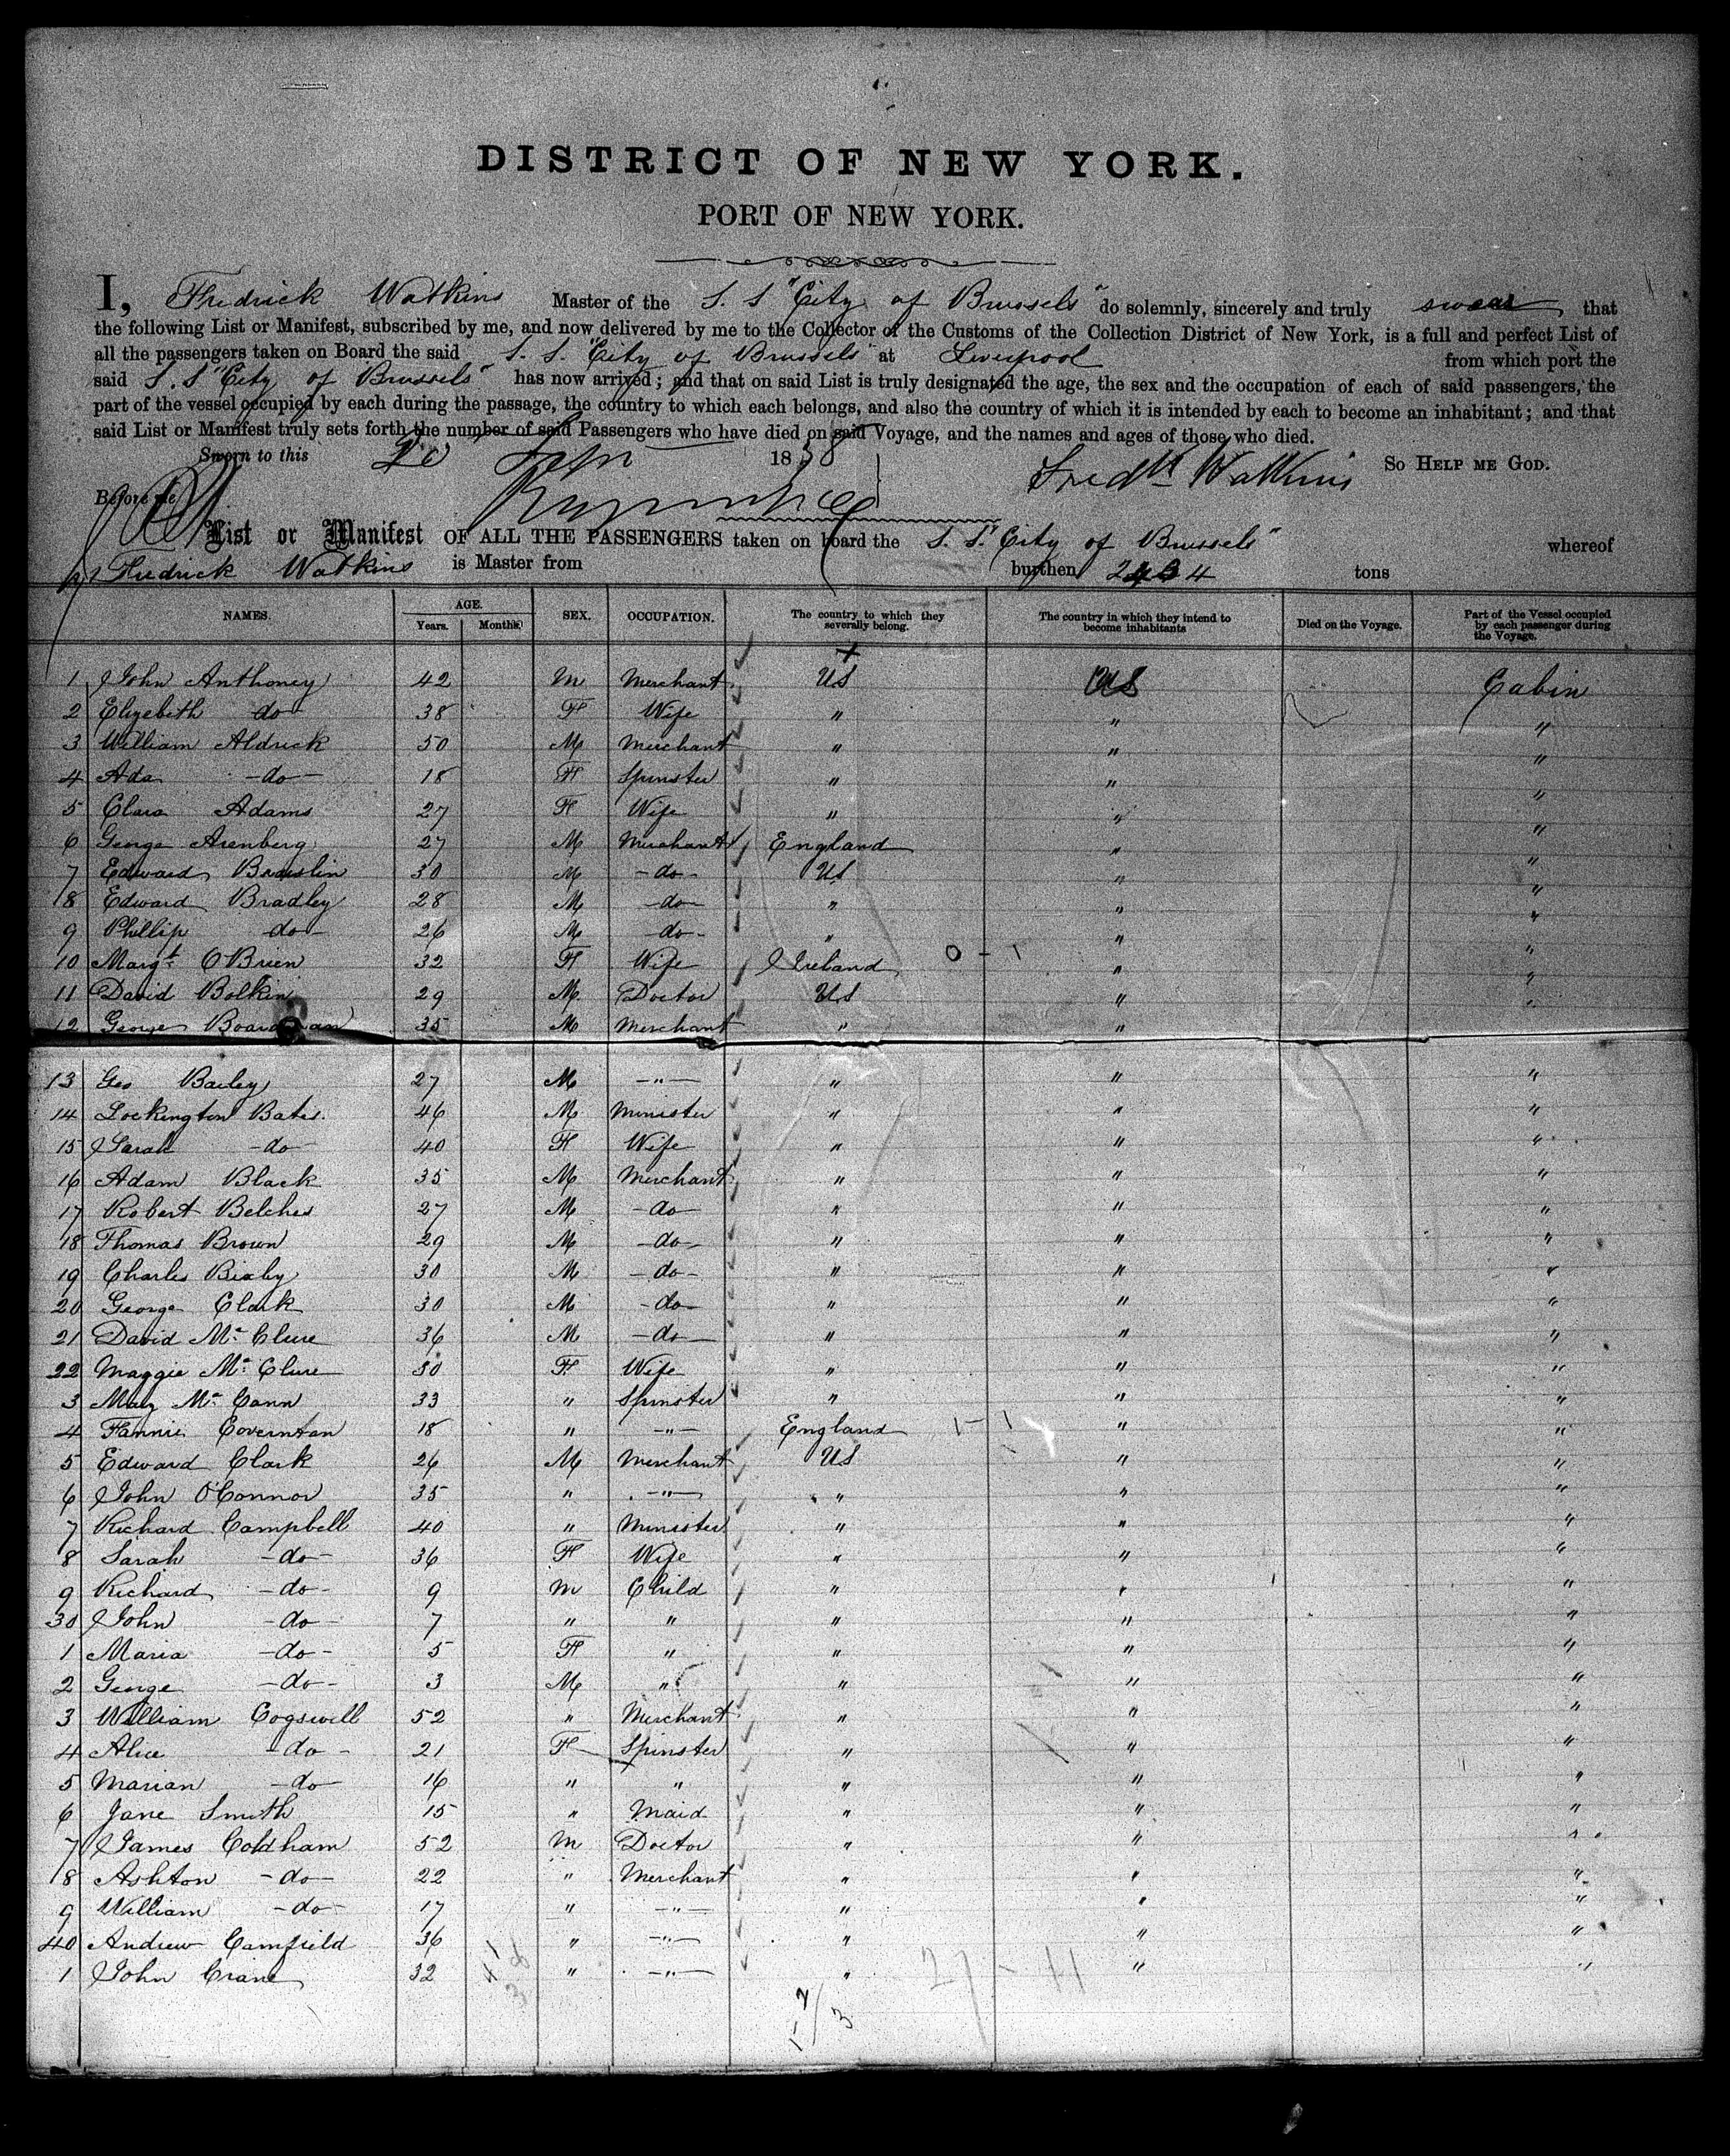 DISTRICT OF NEW YORK.
PORT OF NEW YORK.
I, Fredrick Watkins Master of the S. S "City of Brussels" do solemnly, sincerely and truly swear that
the following List or Manifest, subscribed by me, and now delivered by me to the Collector of the Customs of the Collection District of New York, is a full and perfect List of
all the passengers taken on Board the said S. S. "City of Brussels" at Liverpool from which port the
said S. S "City of Brussels" has now arrived; and that on said List is truly designated the age, the sex and the occupation of each of said passengers, the
part of the vessel occupied by each during the passage, the country to which each belongs, and also the country of which it is intended by each to become an inhabitant; and that
said List or Manifest truly sets forth the number of said Passengers who have died on said Voyage, and the names and ages of those who died.
Sworn to this 18 So Help me God.
Before me Fredk Watkins
List or Manifest OF ALL THE PASSENGERS taken on board the S. S. "City of Brussels" whereof
Fredrick Watkins is Master from burthen tons
NAMES. AGE. Years. Months. SEX. OCCUPATION. The country to which they severally belong. The country in which they intend to become inhabitants Died on the Voyage. Part of the Vessel occupied by each passenger during the Voyage.
1 John Anthoney 42 M Merchant US US Cabin
2 Elizebith do 38 F Wife " " "
3 William Aldrick 50 M Merchant " " "
4 Ada -do- 18 F Spinster " " "
5 Clara Adams 27 F Wife " " "
6 George Arenberg 27 M Merchant England " "
7 Edward Braislin 30 M -do- US " "
8 Edward Bradley 28 M -do- " " "
9 Phillip do- 26 M -do- " " "
10 Margt O'Brien 32 F Wife Ireland 0 - 1 " "
11 David Bolkin 29 M Doctor US " "
12 George 35 M Merchant " " "
13 Geo Bailey 27 M -"- " " "
14 Lockington Bates. 46 M Minister " " "
15 Sarah -do- 40 F Wife " " "
16 Adam Black 35 M Merchant " " "
17 Robert Belches 27 M -do- " " "
18 Thomas Brown 29 M -do- " " "
19 Charles Bixby 30 M -do- " " "
20 George Clark 30 M -do- " " "
21 David Mc Clure 36 M -do- " " "
22 Maggie Mc Clure 30 F Wife " " "
3 May Mc Cann 33 " Spinster " " "
4 Fannie Covernton 18 " -"- England 1 - 1 " "
5 Edward Clark 26 M Merchant US " "
6 John O'Connor 35 " -"- " " "
7 Richard Campbell 40 " Minister " " "
8 Sarah -do- 36 F Wife " " "
9 Richard -do- 9 M Child " " "
30 John -do- 7 " " " " "
1 Maria -do- 5 F " " " "
2 George -do- 3 M " " " "
3 William Cogswell 52 " Merchant " " "
4 Alice -do- 21 F Spinster " " "
5 Marian -do- 16 " " " " "
6 Jane Smith 15 " Maid " " "
7 James Coldham 52 M Doctor " " "
8 Ashton -do- 22 " Merchant " " "
9 William -do- 17 " -"- " " "
40 Andrew Camfield 36 " -"- " " "
1 John Crane 32 " -"- " " "